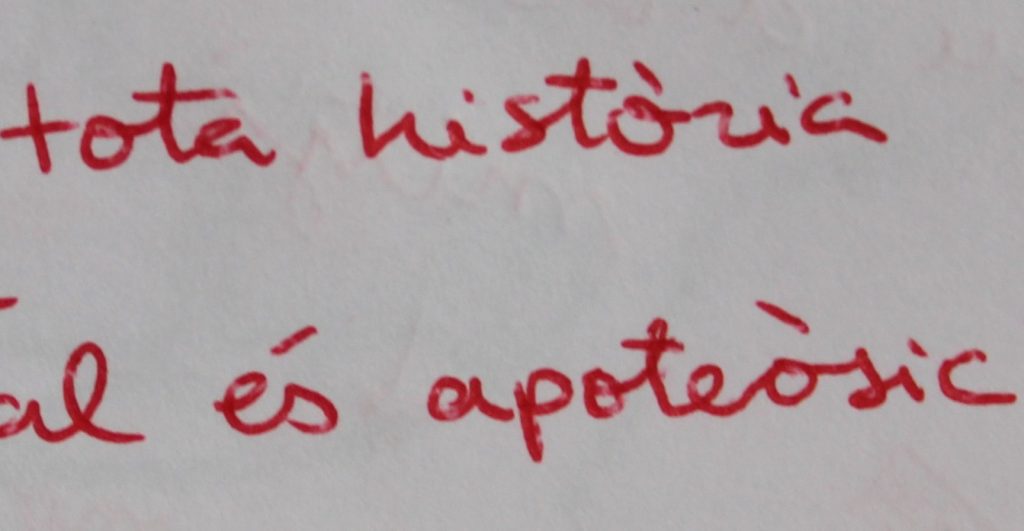 tota història
al és apoteòsic